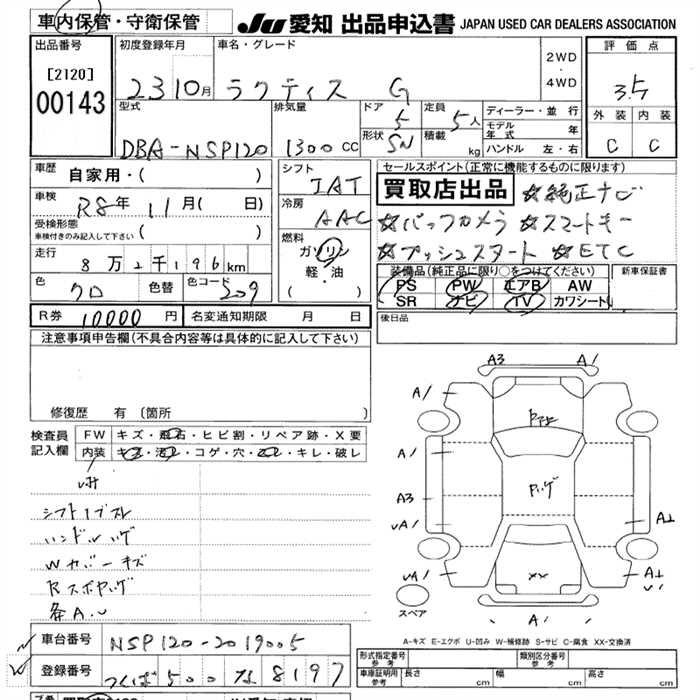 車内保管・守衛保管
JU 愛知 出品申込書 JAPAN USED CAR DEALERS ASSOCIATION
出品番号
[2120]
00143
初度登録年月
23 10月
車名・グレード
ラクティス G
2WD
・
4WD
評価点
3.5
外装 内装
C C
型式
DBA-NSP120
排気量
1300 CC
ドア 5
形状 SN
定員 5人
積載 kg
ディーラー・並行
モデル年式 年
ハンドル 左・右
車歴
自家用・( )
車検
R8年 11月( 日)
受検形態
車検付きのみ記入して下さい ( )
走行
8万2千196km
色 クロ 色替 色コード 209
シフト
IAT
冷房
AAC
燃料
ガソリン
軽・油
( )
セールスポイント(正常に機能するものに限ります)
買取店出品 ☆純正ナビ
☆バックカメラ ☆スマートキー
☆プッシュスタート ☆ETC
装備品(純正品に限り○をつけてください)
新車保証書
PS PW エアB AW
SR ナビ TV カワシート
後日品
R券 10000円 名変通知期限 月 日
注意事項申告欄(不具合内容等は具体的に記入して下さい)
修復歴 有 〔箇所 〕
検査員記入欄
FW キズ・飛石・ヒビ割・リペア跡・X要
内装 キズ・汚レ・コゲ・穴・スレ・キレ・破レ
シフトノブスレ
ハンドルハゲ
Wカバーキズ
各A.U
A3 A1
A1
A1
A3
UA1
UA1
XX
A1
スペア
A-キズ E-エクボ U-凹み W-補修跡 S-サビ C-腐食 XX-交換済
車台番号 NSP120-2019005
登録番号 つくば 500 な 8197
形式指定番号 参考
類別区分番号 参考
車庫証明用 参考 長さ cm 幅 cm 高さ cm